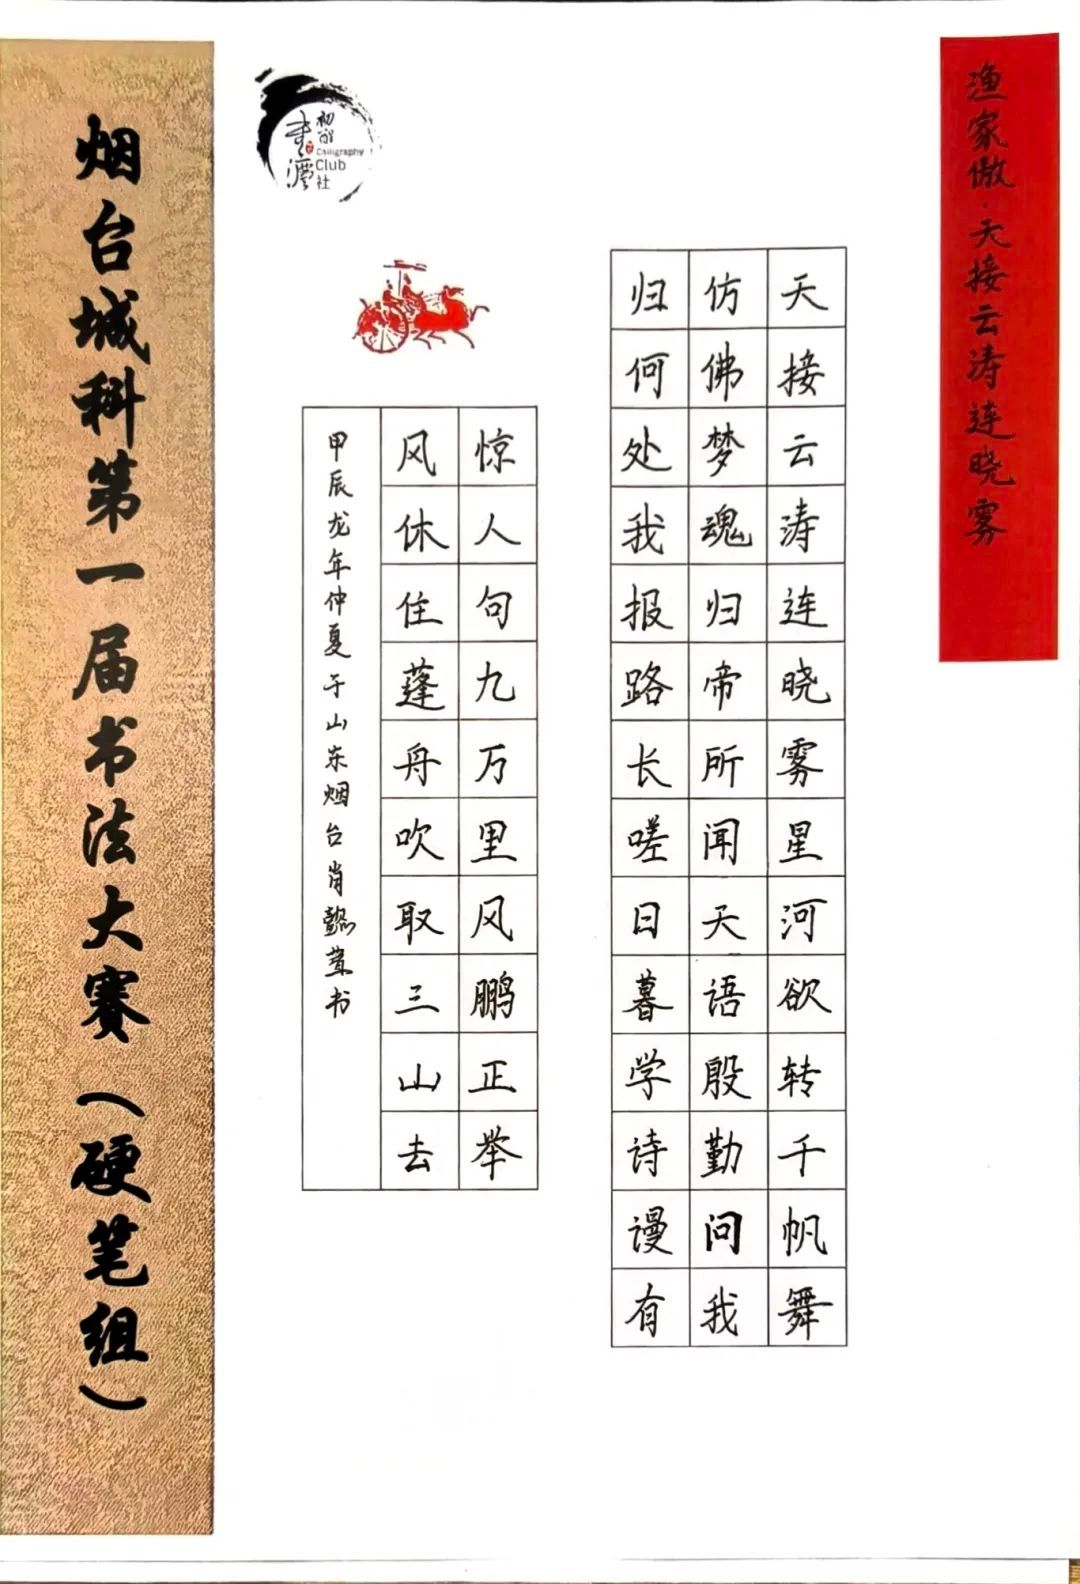 渔家傲·天接云涛连晓雾
天接云涛连晓雾星河欲转千帆舞
仿佛梦魂归帝所闻天语殷勤问我
归何处我报路长嗟日暮学诗谩有
惊人句九万里风鹏正举
风休住蓬舟吹取三山去
甲辰龙年仲夏于山东烟台肖懿萱书
Calligraphy
Club
社
烟台城科第一届书法大赛（硬笔组）